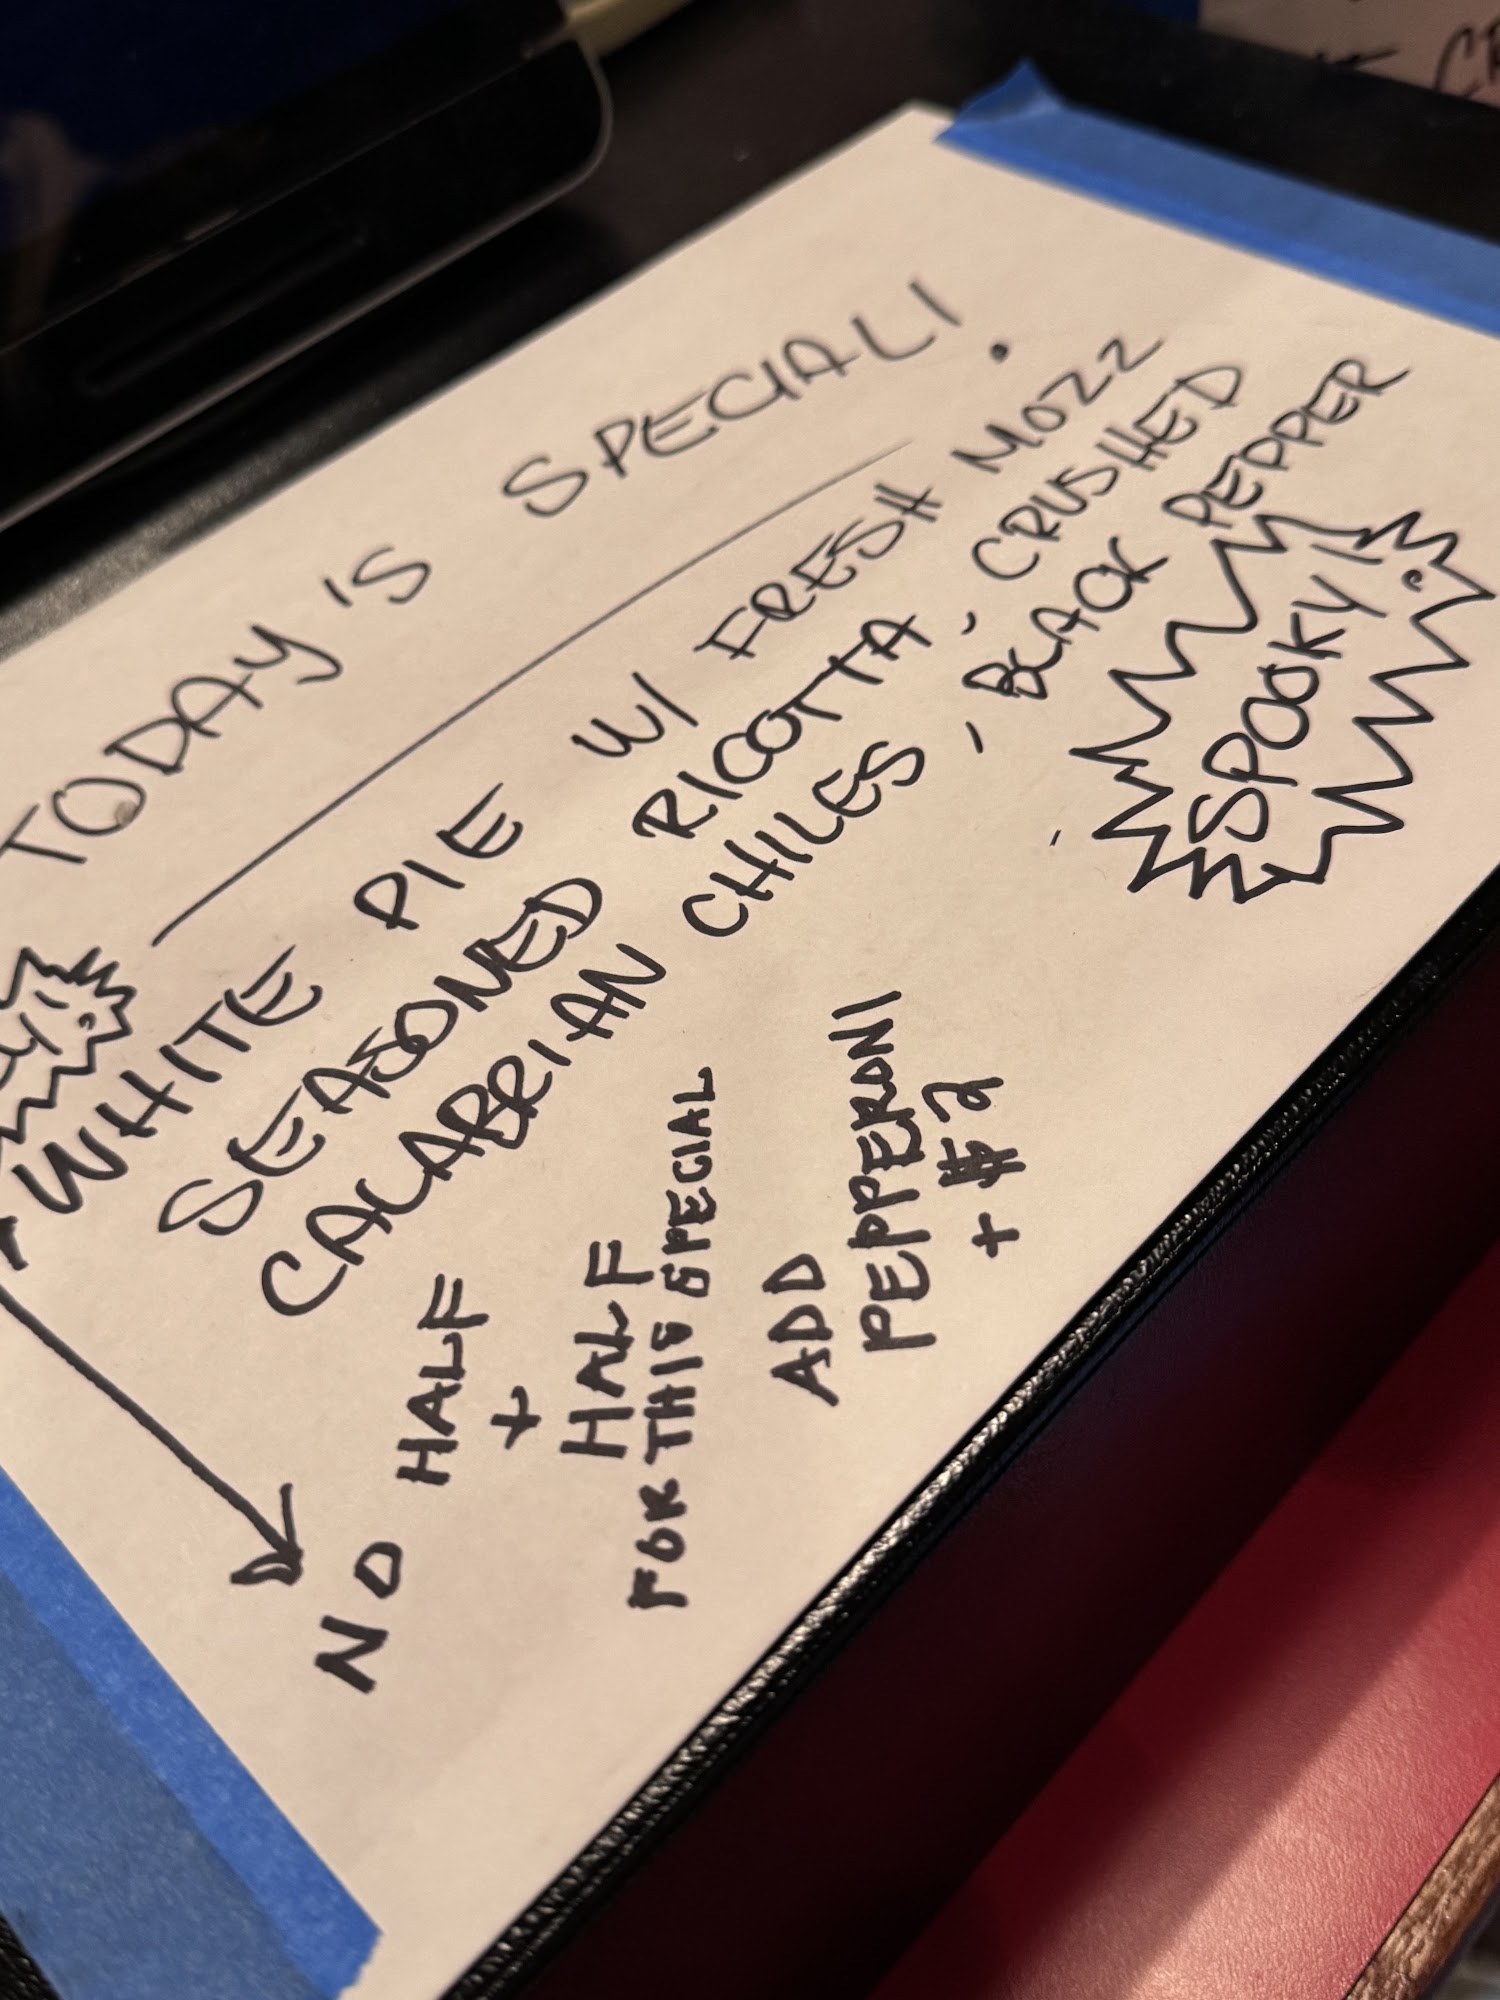 TODAY'S SPECIAL!
WHITE PIE W/ FRESH MOZZ
SEASONED RICOTTA, CRUSHED
CALABRIAN CHILES, BLACK PEPPER
SPOOKY!
NO HALF
+
HALF
FOR THIS SPECIAL
ADD
PEPPERONI
+ $2